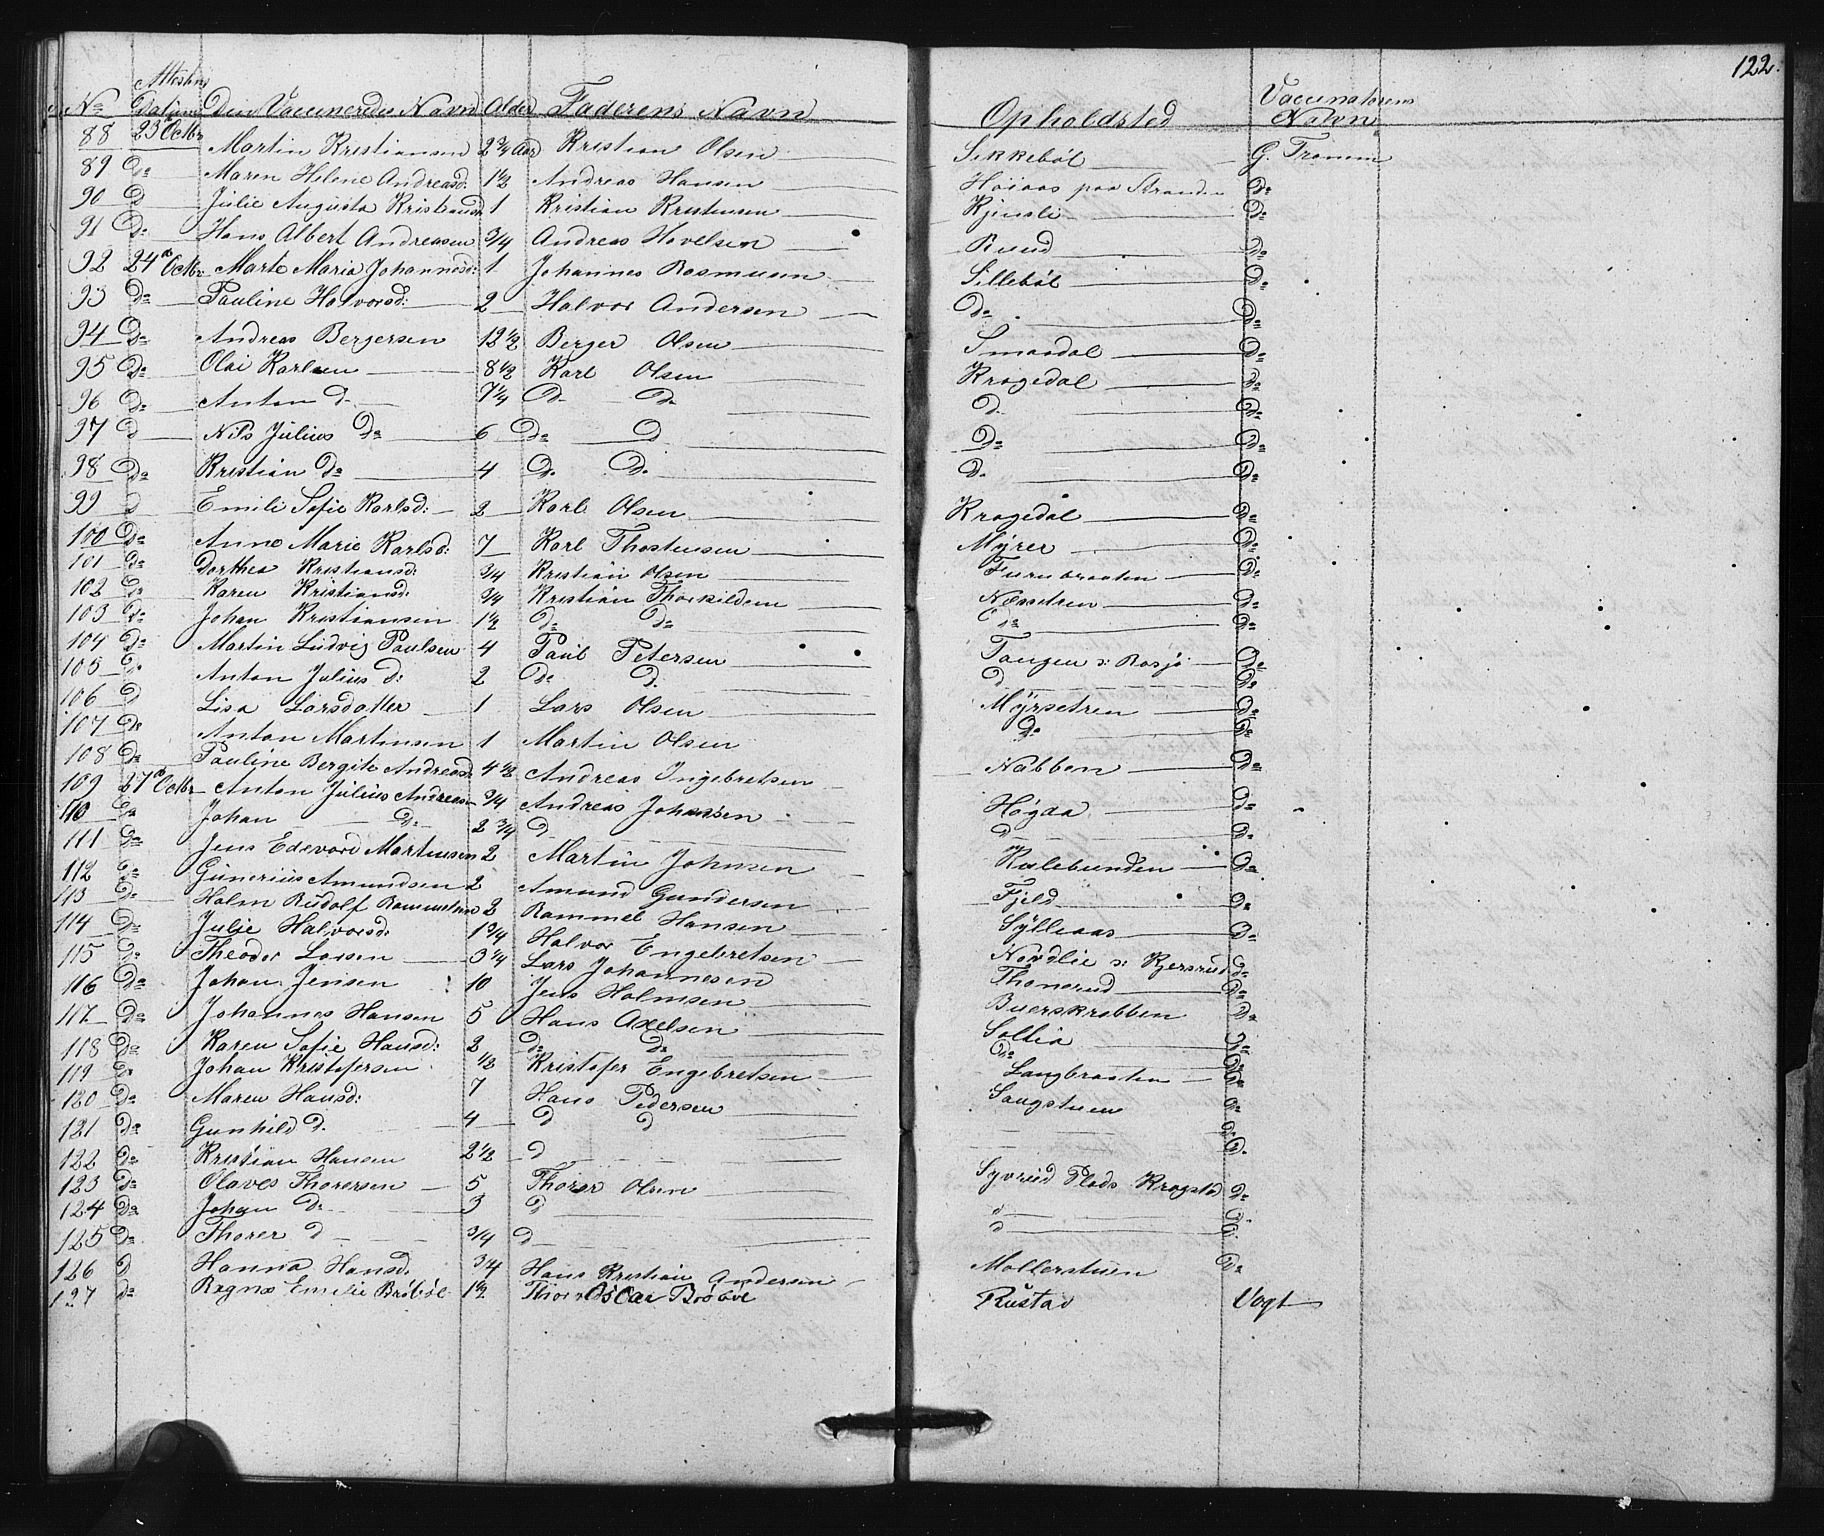 122.
No Attestens Datum Den Vaccineredes Navn Alder Faderens Navn Opholdsted Vaccinatorens Navn
88 23 Octbr Martin Kristiansen 2 3/4 Aar Kristian Olsen Sikkebøl G. Tramm
89 Do Maren Helene Andreasd: 1 1/2 Andreas Hansen Høiaas paa Stranden Do
90 D Julie Augusta Kristiansd 1 Kristian Kristensen Kjinsli Do
91 Do Hans Albert Andreasen 3/4 Andreas Hovelsen Ruud Do
92 24de Octbr Marte Maria Johannesd: 1 Johannes Rasmusen Sillebøl Do
93 Do Pauline Halvorsd: 2 Halvor Andersen Do Do
94 Do Andreas Bergersen 12 1/2 Berger Olsen Smaadal Do
95 Do Olai Karlsen 8 1/2 Karl Olsen Kragedal Do
96 Do Anton D. 7 1/4 D. D. D. Do
97 D Nils Julius Do 6 Do D Do Do
98 Do Kristian Do 4 D. D. D. Do
99 D Emile Sofie Karlsd: 2 Karl Olsen Kragedal Do
100 Do Anne Marie Karlsd: 7 Karl Thostensen Myrer Do
101 Do Dorthea Kristiansd: 3/4 Kristian Olsen Furubraaten Do
102 Do Karen Kristiansd: 3/4 Kristian Thorkildsen Næssetren Do
103 Do Johan Kristiansen 1 1/2 Do Do Do Do
104 Do Martin Ludvig Paulsen 4 Paul Petersen Tangen s: Rasjø Do
105 Do Anton Julius D: 2 Do D. D Do
106 D Lisa Larsdatter 1 Lars Olsen Myrsetren Do
107 Do Anton Martinsen 1 Martin Olsen Do Do
108 Do Pauline Bergite Andreasd: 4 1/2 Andreas Ingebretsen Nabben Do
109 27de Octbr Anton Julius Andreasen 3/4 Andreas Johansen Høgda Do
110 Do Johan Do 2 3/4 D D Do
111 Do Jens Edevard Martinsen 2 Martin Johnsen Kulebunden Do
112 Do Gunerius Amundsen 2 Amund Gundersen Fjeld Do
113 Do Holm Rudolf Rammelsen 2 Rammel Hansen Sylliaas Do
114 Do Julie Halvorsd: 1 3/4 Halvor Engebretsen Nordlie s: Kjersrud Do
115 Do Theodor Larsen 3 1/4 Lars Johannesen Thonerud Do
116 Do Johan Jensen 10 Jens Holmsen Buerskrabben Do
117 Do Johannes Hansen 5 Hans Axelsen Sollia Do
118 Do Karen Sofie Hansd: 2 Do Do Do Do
119 Do Johan Kristofersen 1/2 Kristofer Engebretsen Langbraaten Do
120 Do Maren Hansd: 7 Hans Pedersen Saugstuen Do
121 Do Gunhild D. 4 D D D
122 Do Kristian Hansen 2 1/2 D D.
123 Do Olaves Thorersen 5 Thorer Olsen Syverud Plads Kragstad Do
124 Do Johan Do 3 D " D.
125 Do Thorer D 3/4 D D D.
126 D Hanna Hansd. 3/4 Hans Kristian Andersen Møllerstuen Do
127 Do Ragna Emilie Brøbøl 1 1/2 Oscar Brøbøl Rustad Vogt